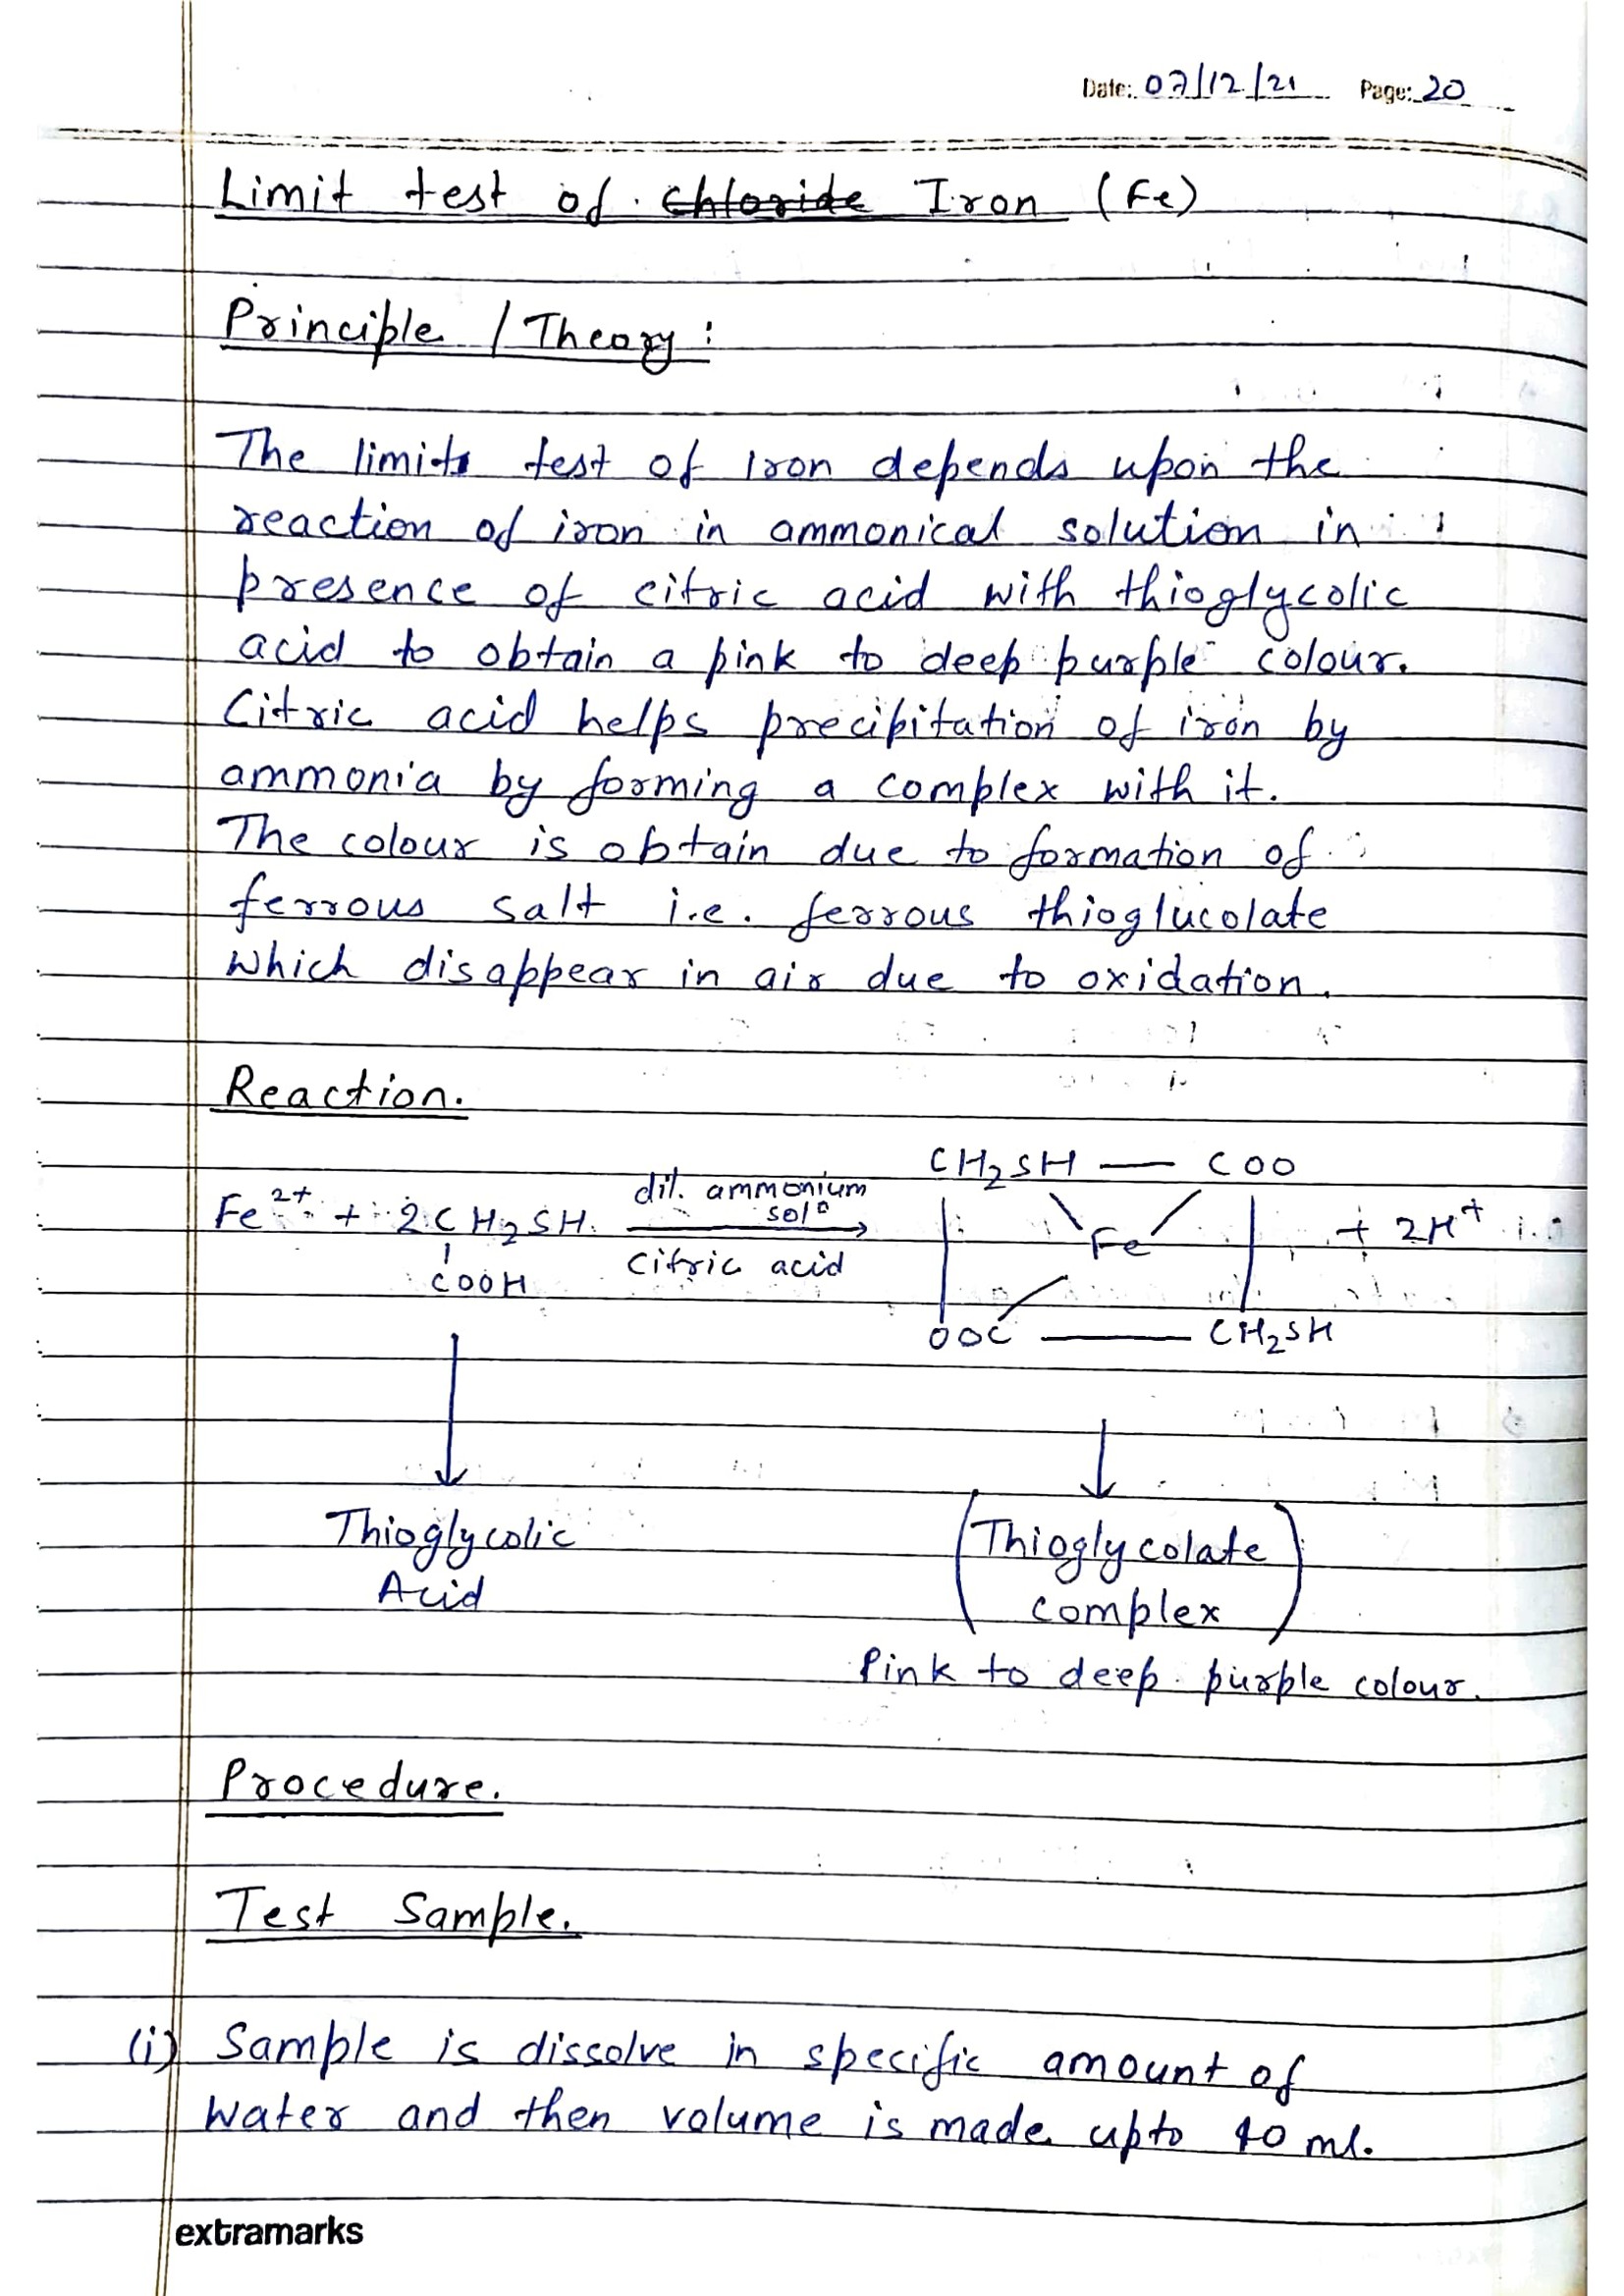 Date: 07/12/21 Page: 20
Limit test of Chloride Iron (Fe)
Principle / Theory:
The limits test of iron depends upon the
reaction of iron in ammonical solution in
presence of citric acid with thioglycolic
acid to obtain a pink to deep purple colour.
Citric acid helps precipitation of iron by
ammonia by forming a complex with it.
The colour is obtain due to formation of
ferrous salt i.e. ferrous thioglucolate
which disappear in air due to oxidation.
Reaction.
CH₂SH — COO
Fe²⁺ + 2CH₂SH dil. ammonium solⁿ → Fe + 2H⁺
COOH citric acid
OOC — CH₂SH
Thioglycolic (Thioglycolate
Acid complex)
Pink to deep purple colour.
Procedure.
Test Sample.
(i) Sample is dissolve in specific amount of
water and then volume is made upto 40 ml.
extramarks